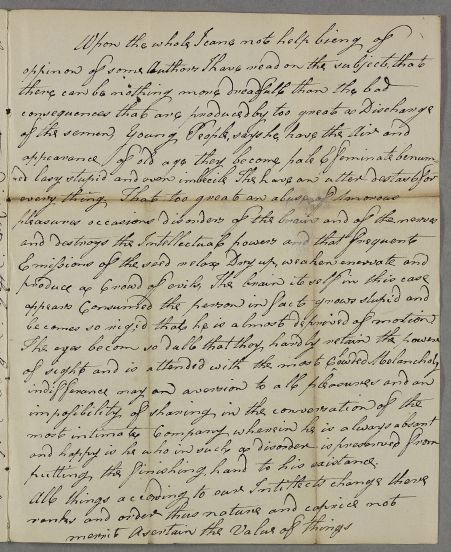 Upon the whole I cane not help bieng of
oppinon of some Authors I have read on the subject, that
there can be nothing more dreadfull than the bad
consequences that are produced by too great a Discharge
of the semen Young People, says he, have the Air and
appearance of old age they become pale Efeminate benum
ed lasy stupid and even imbecile The have an utter destast for
every thing, That too great an abuse of Amorous
pleasures occasions disorders of the brains and of the nerves
and destroys the Intellectual powers and that frequent
Emissions of the seed relax Dry up, weaken enervate and
produce a Crowd of evils, The brain it self in this case
appears Consumed the person in fact grows stupid and
becomes so rigid that he is almost deprived of motion
The eyes becom so dull that they hardly retain the power
of sight and is attended with the most Melancholy
indifference may an aversion to all pleasures and an
impossibility of sharing in the conversation of the
most intimate Company wherein he is always absent
and happy is he who in such a disorder is preserved from
putting the finishing hand to his existance.
All things according to our Intillects change there
ranks and order thus nature and caprice not
merrit Asertain the Value of things